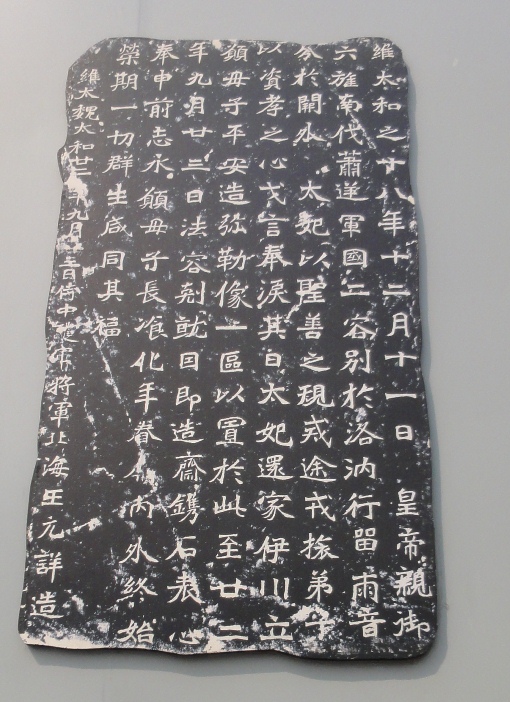 維太和之十八年十二月十一日 皇帝親御
六旌南伐蕭逆軍國二容別於洛汭行留兩音
分於闕外 太妃以聖善之規戒途戎旅弟子
以資孝之心戈言奉淚其日太妃還家伊川立
願母子平安造弥勒像一區以置於此至廿二
年九月廿三日法容剋就因即造齋鐫石表心
奉申前志永願母子長飡化年眷內外終始
榮期一切群生咸同其福
維太魏太和廿年九月日侍中將軍北海王元詳造